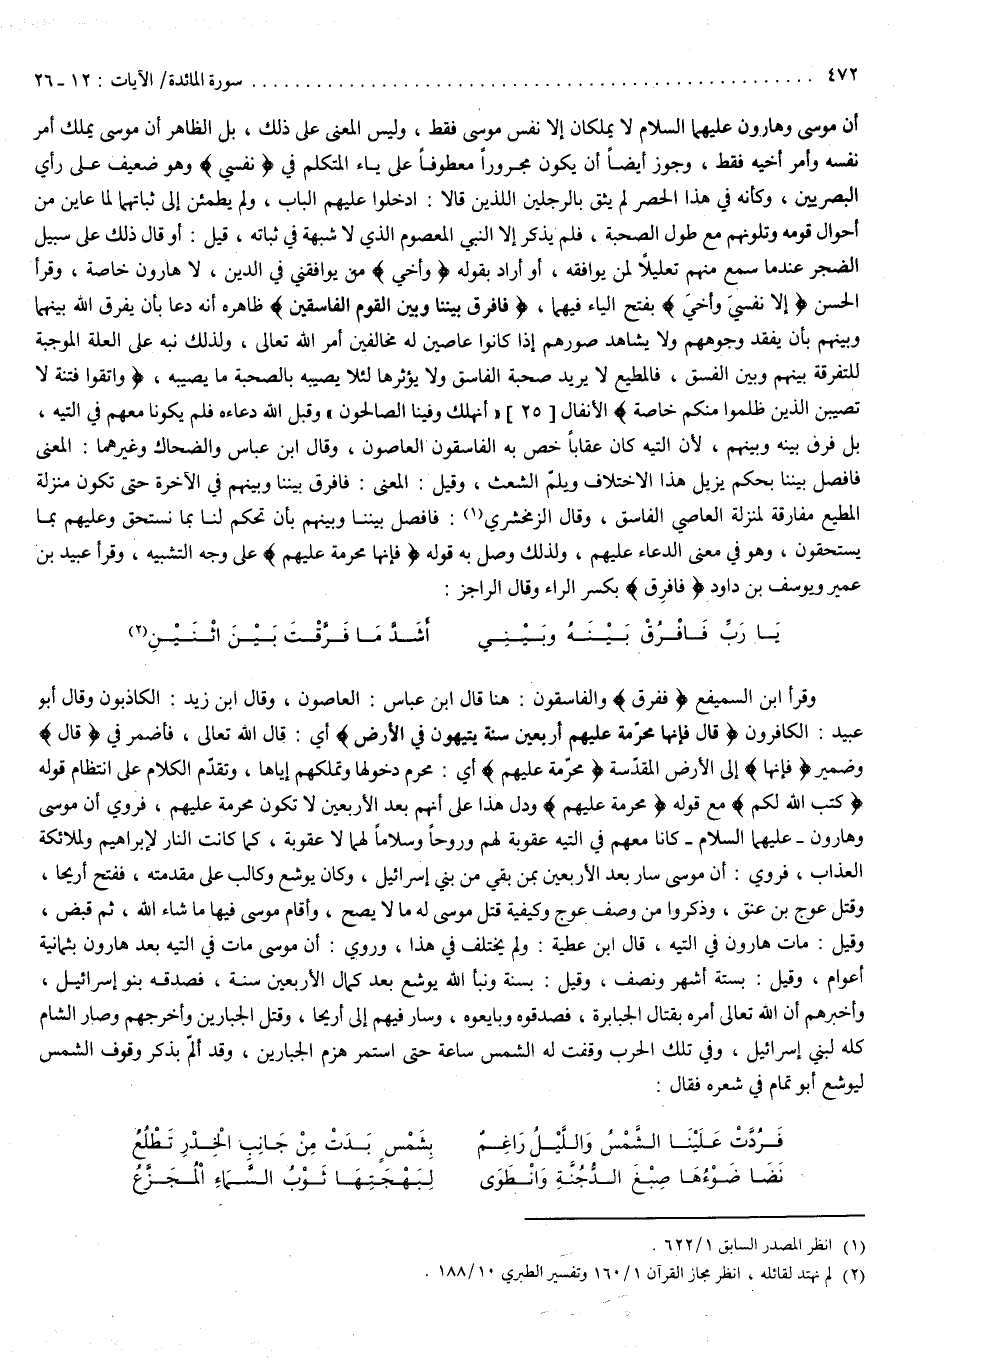 ٤٧٢ .......................................................... سورة المائدة/ الآيات : ١٢ ـ ٢٦
أن موسى وهارون عليهما السلام لا يملكان إلا نفس موسى فقط ، وليس المعنى على ذلك ، بل الظاهر أن موسى يملك أمر
نفسه وأمر أخيه فقط ، وجوز أيضاً أن يكون مجروراً معطوفاً على ياء المتكلم في ﴿ نفسي ﴾ وهو ضعيف على رأي
البصريين ، وكأنه في هذا الحصر لم يثق بالرجلين اللذين قالا : ادخلوا عليهم الباب ، ولم يطمئن إلى ثباتهما لما عاين من
أحوال قومه وتلونهم مع طول الصحبة ، فلم يذكر إلا النبي المعصوم الذي لا شبهة في ثباته ، قيل : أو قال ذلك على سبيل
الضجر عندما سمع منهم تعليلاً لمن يوافقه ، أو أراد بقوله ﴿ وأخي ﴾ من يوافقني في الدين ، لا هارون خاصة ، وقرأ
الحسن ﴿ إلا نفسيَ وأخيَ ﴾ بفتح الياء فيهما ، ﴿ فافرق بيننا وبين القوم الفاسقين ﴾ ظاهره أنه دعا بأن يفرق الله بينهما
وبينهم بأن يفقد وجوههم ولا يشاهد صورهم إذا كانوا عاصين له مخالفين أمر الله تعالى ، ولذلك نبه على العلة الموجبة
للتفرقة بينهم وبين الفسق ، فالمطيع لا يريد صحبة الفاسق ولا يؤثرها لئلا يصيبه بالصحبة ما يصيبه ، ﴿ واتقوا فتنة لا
تصيبن الذين ظلموا منكم خاصة ﴾ الأنفال [ ٢٥ ] « أنهلك وفينا الصالحون » وقبل الله دعاءه فلم يكونا معهم في التيه ،
بل فرق بينه وبينهم ، لأن التيه كان عقاباً خص به الفاسقون العاصون ، وقال ابن عباس والضحاك وغيرهما : المعنى
فافصل بيننا بحكم يزيل هذا الاختلاف ويلمّ الشعث ، وقيل : المعنى : فافرق بيننا وبينهم في الآخرة حتى تكون منزلة
المطيع مفارقة لمنزلة العاصي الفاسق ، وقال الزمخشري(١) : فافصل بيننا وبينهم بأن تحكم لنا بما نستحق وعليهم بما
يستحقون ، وهو في معنى الدعاء عليهم ، ولذلك وصل به قوله ﴿ فإنها محرمة عليهم ﴾ على وجه التشبيه ، وقرأ عبيد بن
عمير ويوسف بن داود ﴿ فافرِق ﴾ بكسر الراء وقال الراجز :
يَا رَبِّ فَافْرُقْ بَيْنَهُ وبَيْنِي أَشَدَّ مَا فَرَّقْتَ بَيْنَ اثْنَيْنِ(٢)
وقرأ ابن السميفع ﴿ ففرق ﴾ والفاسقون : هنا قال ابن عباس : العاصون ، وقال ابن زيد : الكاذبون وقال أبو
عبيد : الكافرون ﴿ قال فإنها محرّمة عليهم أربعين سنة يتيهون في الأرض ﴾ أي : قال الله تعالى ، فأضمر في ﴿ قال ﴾
وضمير ﴿ فإنها ﴾ إلى الأرض المقدّسة ﴿ محرّمة عليهم ﴾ أي : محرم دخولها وتملكهم إياها ، وتقدّم الكلام على انتظام قوله
﴿ كتب الله لكم ﴾ مع قوله ﴿ محرمة عليهم ﴾ ودل هذا على أنهم بعد الأربعين لا تكون محرمة عليهم ، فروي أن موسى
وهارون ـ عليهما السلام ـ كانا معهم في التيه عقوبة لهم وروحاً وسلاماً لهما لا عقوبة ، كما كانت النار لإبراهيم ولملائكة
العذاب ، فروي : أن موسى سار بعد الأربعين بمن بقي من بني إسرائيل ، وكان يوشع وكالب على مقدمته ، ففتح أريحا ،
وقتل عوج بن عنق ، وذكروا من وصف عوج وكيفية قتل موسى له ما لا يصح ، وأقام موسى فيها ما شاء الله ، ثم قبض ،
وقيل : مات هارون في التيه ، قال ابن عطية : ولم يختلف في هذا ، وروي : أن موسى مات في التيه بعد هارون بثمانية
أعوام ، وقيل : بستة أشهر ونصف ، وقيل : بسنة ونبأ الله يوشع بعد كمال الأربعين سنة ، فصدقه بنو إسرائيل ،
وأخبرهم أن الله تعالى أمره بقتال الجبابرة ، فصدقوه وبايعوه ، وسار فيهم إلى أريحا ، وقتل الجبارين وأخرجهم وصار الشام
كله لبني إسرائيل ، وفي تلك الحرب وقفت له الشمس ساعة حتى استمر هزم الجبارين ، وقد ألمّ بذكر وقوف الشمس
ليوشع أبو تمام في شعره فقال :
فَرُدَّتْ عَلَيْنَا الشَّمْسُ وَاللَّيْلُ رَاغِمٌ بِشَمْسٍ بَدَتْ مِنْ جَانِبِ الْخِدْرِ تَطْلُعُ
نَضَا ضَوْءُهَا صِبْغَ الدُّجُنَّةِ وَانْطَوَى لِبَهْجَتِهَا ثَوْبُ السَّمَاءِ الْمُجَزَّعُ
(١) انظر المصدر السابق ٦٢٢/١ .
(٢) لم نهتد لقائله ، انظر مجاز القرآن ١٦٠/١ وتفسير الطبري ١٨٨/١٠ .